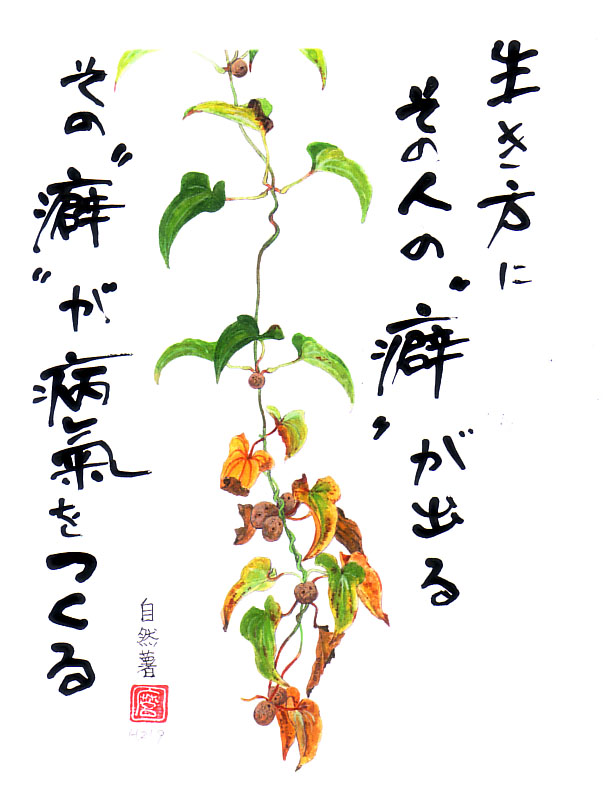 生き方に
その人の“癖”が出る
その“癖”が病氣をつくる
自然薯